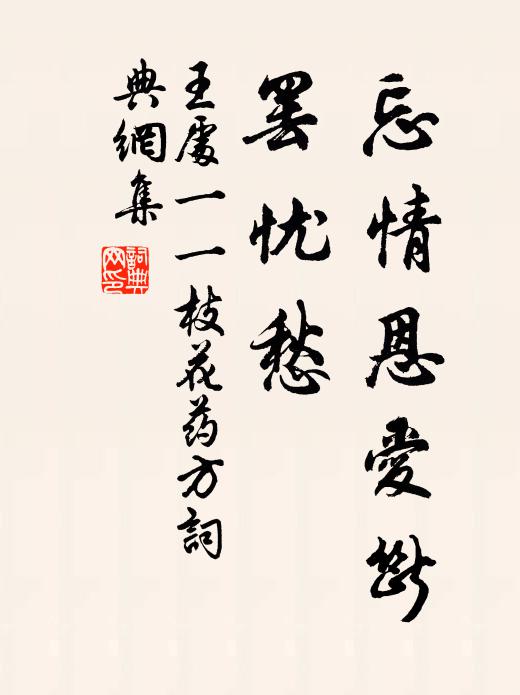 忘情恩愛断
罢忧愁
王處一一枝花药方詞
典網集
詞典网印